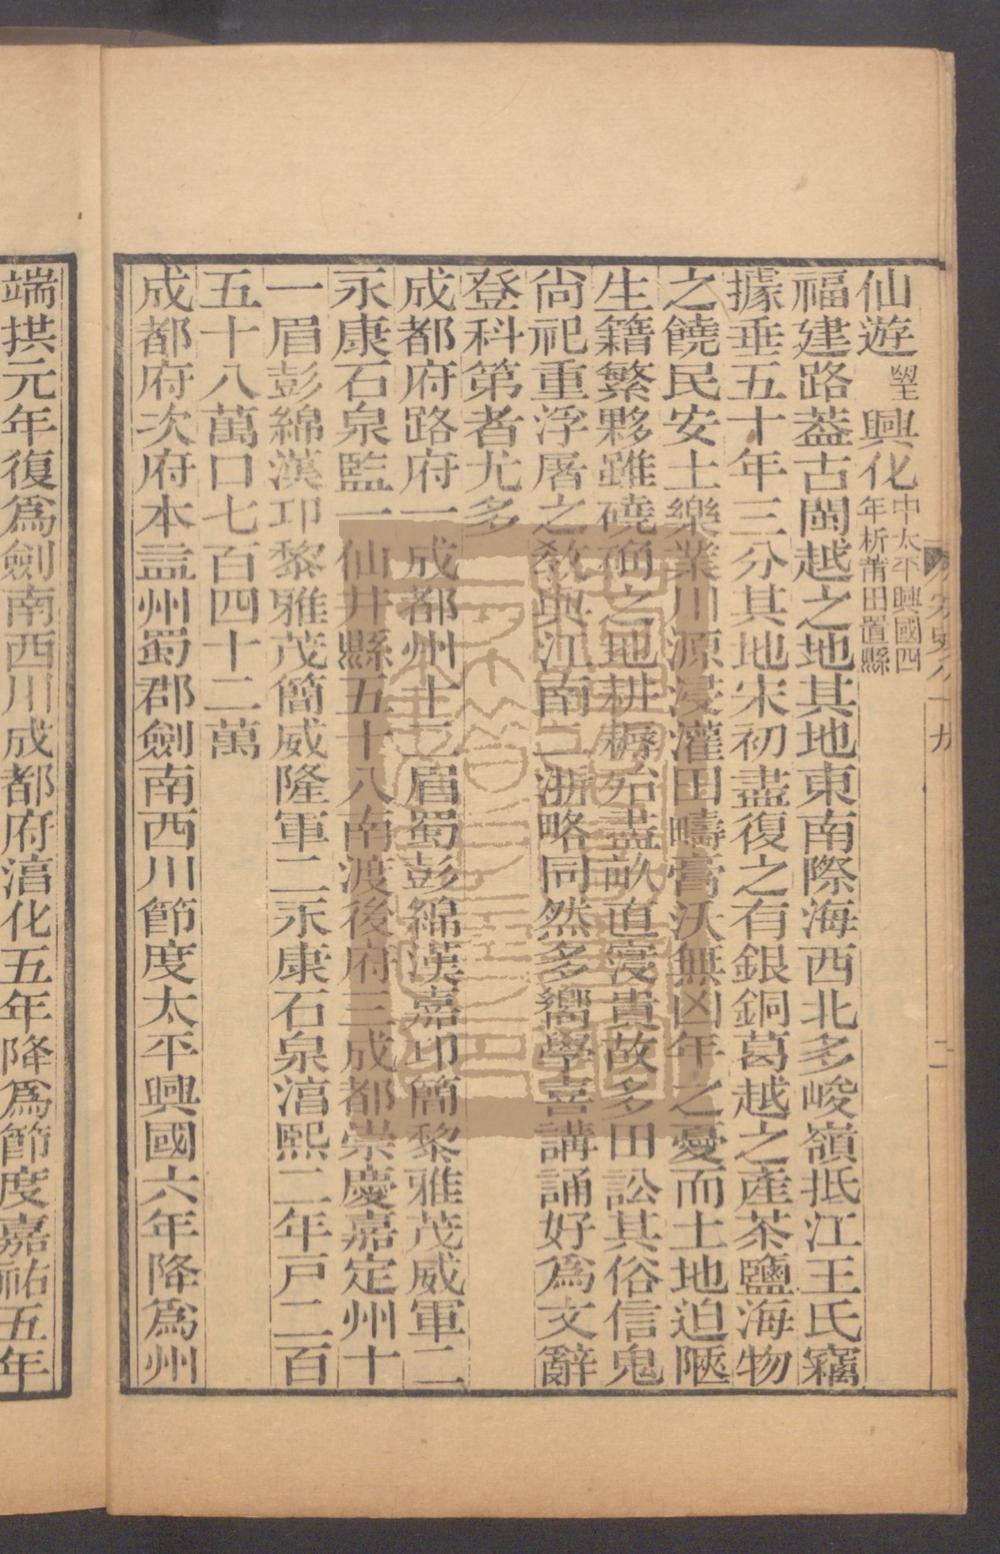 仙遊望興化中太平興國四年析莆田置縣
福建路蓋古閩越之地其地東南際海西北多峻嶺抵江王氏竊
據垂五十年三分其地宋初盡復之有銀銅葛越之產茶鹽海物
之饒民安土樂業川源浸灌田疇膏沃無凶年之憂而土地迫陿
生籍繁夥雖磽确之地耕耨殆盡畝直寖貴故多田訟其俗信鬼
尚祀重浮屠之教與江南二浙略同然多嚮學喜講誦好為文辭
登科第者尤多
成都府路府一成都州十二眉蜀彭綿漢嘉卭簡黎雅茂威軍二
永康石泉監一仙井縣五十八南渡後府三成都崇慶嘉定州十
一眉彭綿漢卭黎雅茂簡威隆軍二永康石泉淳熙二年戶二百
五十八萬口七百四十二萬
成都府次府本益州蜀郡劍南西川節度太平興國六年降為州
端拱元年復為劍南西川成都府淳化五年降為節度嘉祐五年